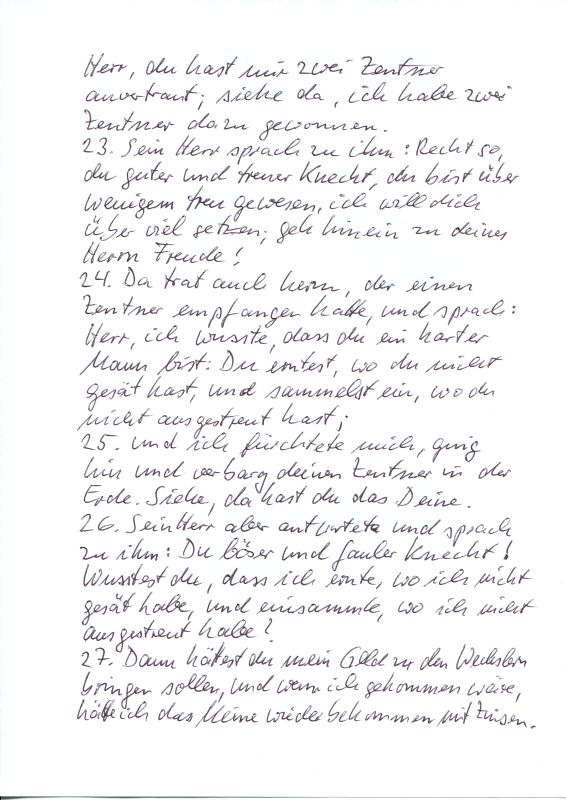 Herr, du hast mir zwei Zentner
anvertraut; siehe da, ich habe zwei
Zentner dazu gewonnen.
23. Sein Herr sprach zu ihm: Recht so,
du guter und treuer Knecht, du bist über
wenigem treu gewesen, ich will dich
über viel setzen; geh hinein zu deines
Herrn Freude!
24. Da trat auch herzu, der einen
Zentner empfangen hatte, und sprach:
Herr, ich wusste, dass du ein harter
Mann bist: Du erntest, wo du nicht
gesät hast, und sammelst ein, wo du
nicht ausgestreut hast;
25. und ich fürchtete mich, ging
hin und verbarg deinen Zentner in der
Erde. Siehe, da hast du das Deine.
26. Sein Herr aber antwortete und sprach
zu ihm: Du böser und fauler Knecht!
Wusstest du, dass ich ernte, wo ich nicht
gesät habe, und einsammle, wo ich nicht
ausgestreut habe?
27. Dann hättest du mein Geld zu den Wechslern
bringen sollen, und wenn ich gekommen wäre,
hätte ich das Meine wiederbekommen mit Zinsen.